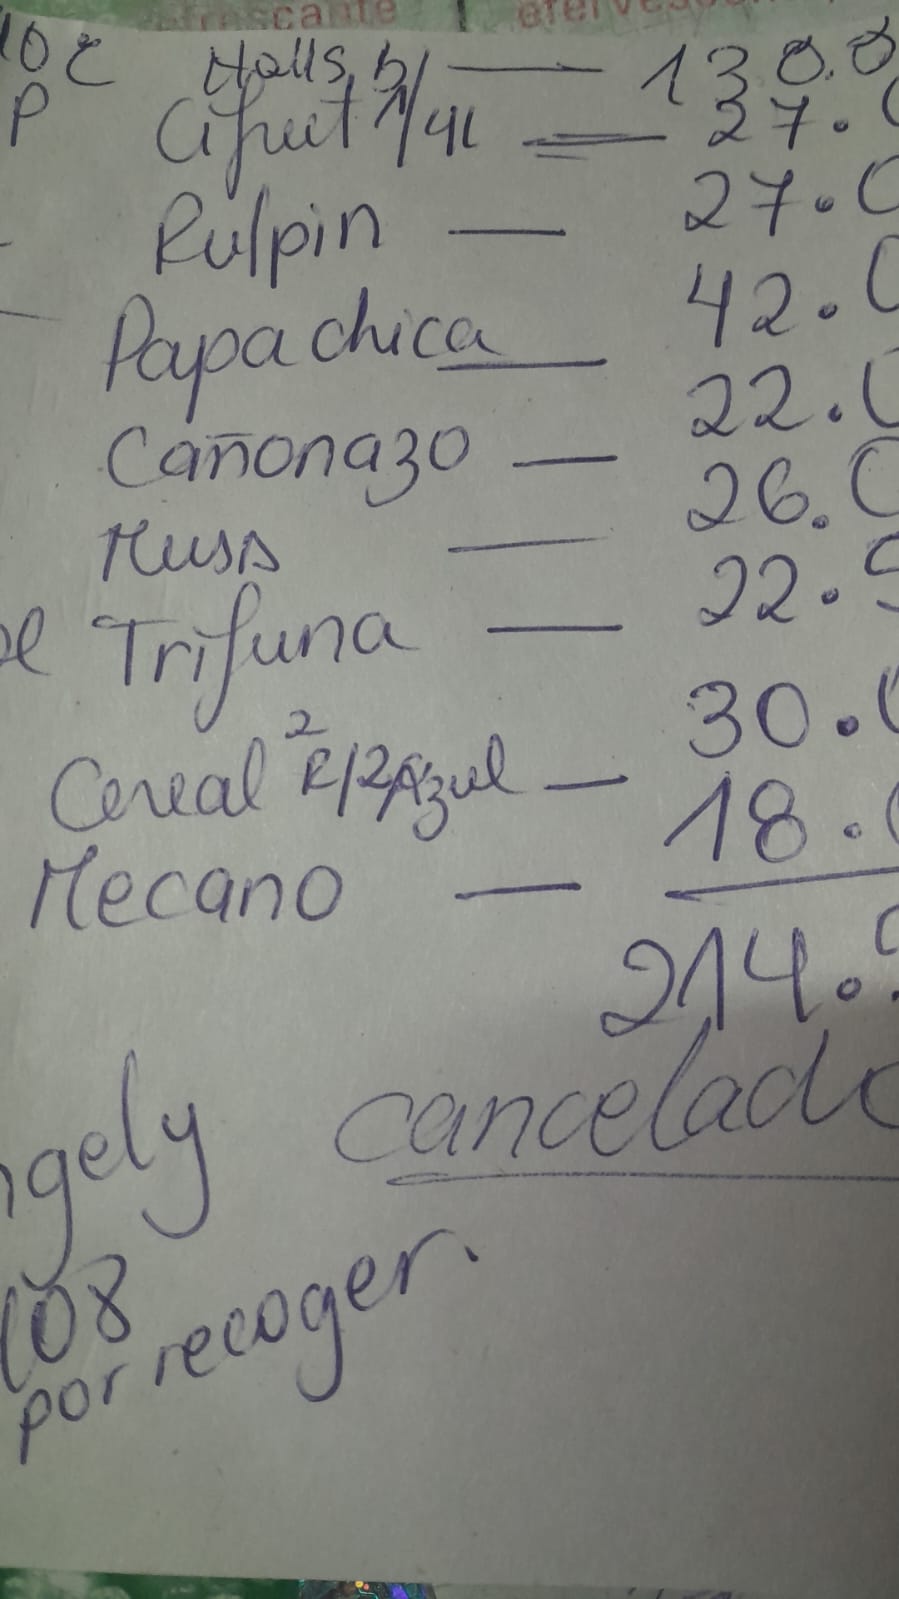 frescante eferves
10 c Halls b/ — 130.0
P Cifrut 1/4L = 27.0
Pulpin — 27.0
Papa chica — 42.0
Cañonazo — 22.0
Muss — 26.0
Trifuna — 22.5
Cereal 2R/2Azul — 30.0
Mecano — 18.0
214.
ngely cancelado
108
por recoger.